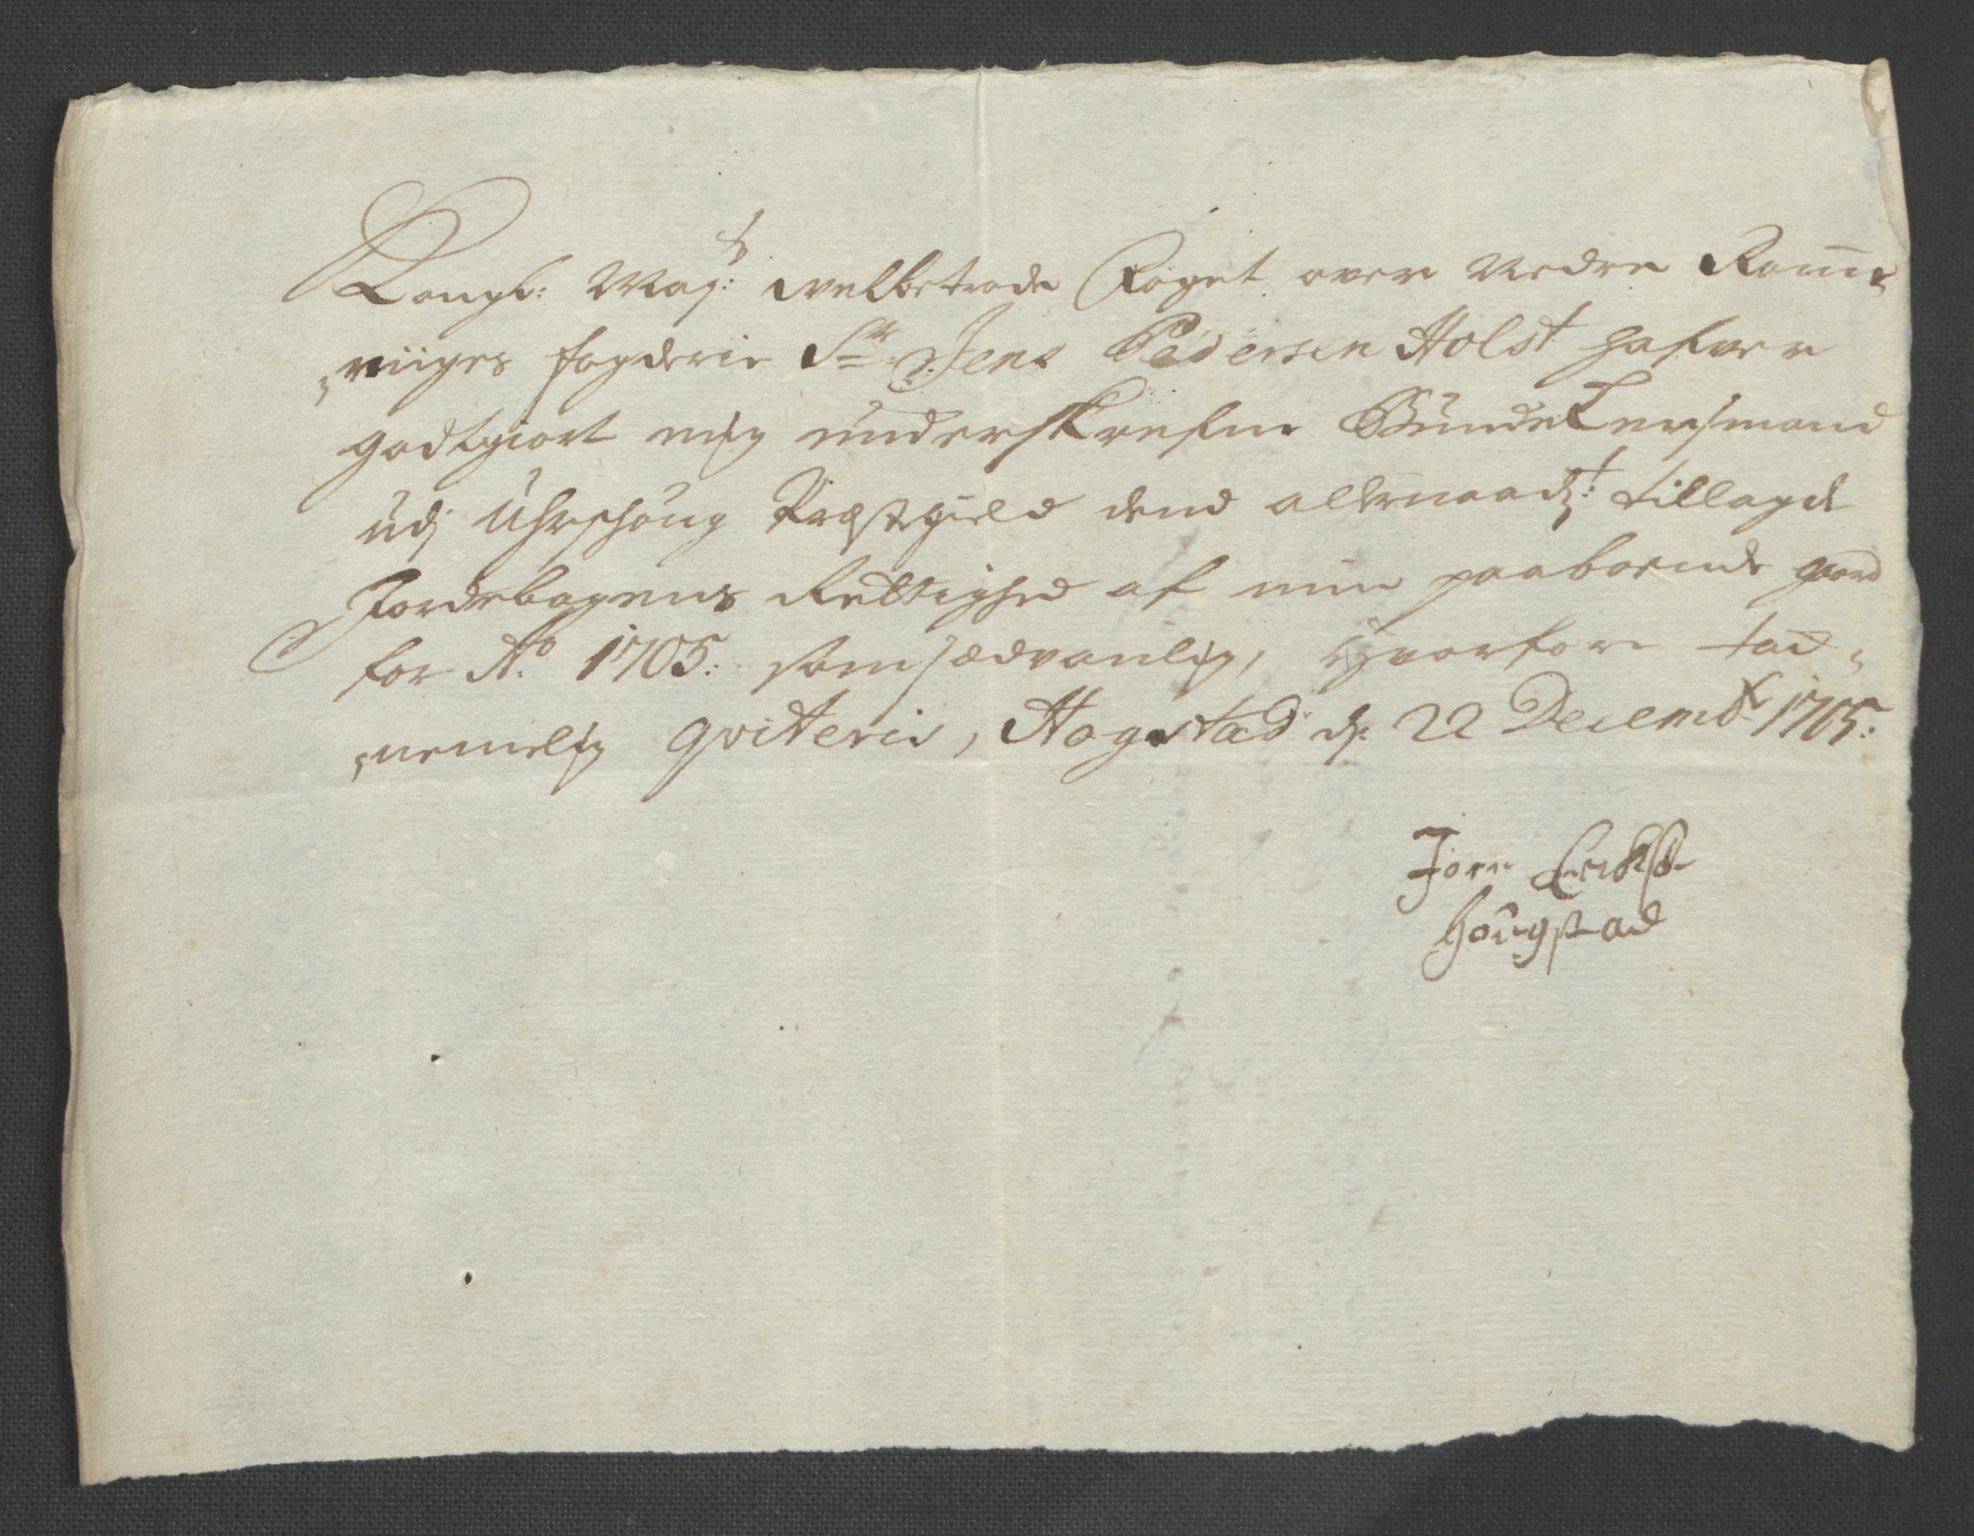 Kongl: Maÿ:ts welbetrode Foget over Nedre Romme-
riiges fogderie Sr Jens Pedersen Holst hafver
godtgiort mig underskrefne Bunde Lensmand
udj Uhrschoug Præstegield dend allernaadt: tillagde
Jordebogens Rettighed af min paaboende gord
for Ao 1705: som sædvanlig, hvorfore tad-
nemelig qviteris, Hogstad d: 22 Decembr 1705:
Joen Erichß:
Hougstad